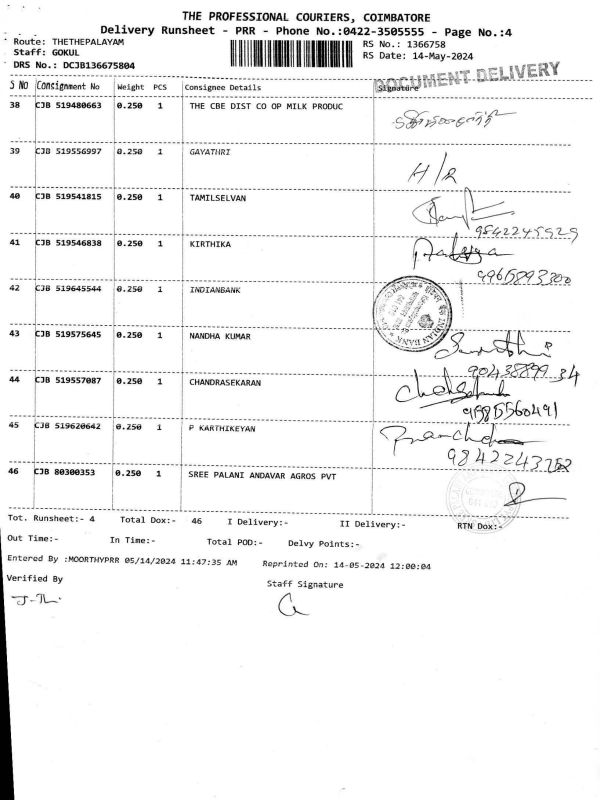 THE PROFESSIONAL COURIERS, COIMBATORE
Delivery Runsheet - PRR - Phone No.:0422-3505555 - Page No.:4
Route: THETHEPALAYAM RS No.: 1366758
Staff: GOKUL RS Date: 14-May-2024
DRS No.: DCJB136675804
DOCUMENT DELIVERY
S NO Consignment No Weight PCS Consignee Details Signature
38 CJB 519480663 0.250 1 THE CBE DIST CO OP MILK PRODUC
39 CJB 519556997 0.250 1 GAYATHRI
H/R
40 CJB 519541815 0.250 1 TAMILSELVAN
9842245929
41 CJB 519546838 0.250 1 KIRTHIKA
9965893300
42 CJB 519645544 0.250 1 INDIANBANK
INDIAN BANK
43 CJB 519575645 0.250 1 NANDHA KUMAR
9043889934
44 CJB 519557087 0.250 1 CHANDRASEKARAN
45 CJB 519620642 0.250 1 P KARTHIKEYAN
46 CJB 80300353 0.250 1 SREE PALANI ANDAVAR AGROS PVT
Tot. Runsheet:- 4 Total Dox:- 46 I Delivery:- II Delivery:- RTN Dox:-
Out Time:- In Time:- Total POD:- Delvy Points:-
Entered By :MOORTHYPRR 05/14/2024 11:47:35 AM Reprinted On: 14-05-2024 12:00:04
Verified By Staff Signature